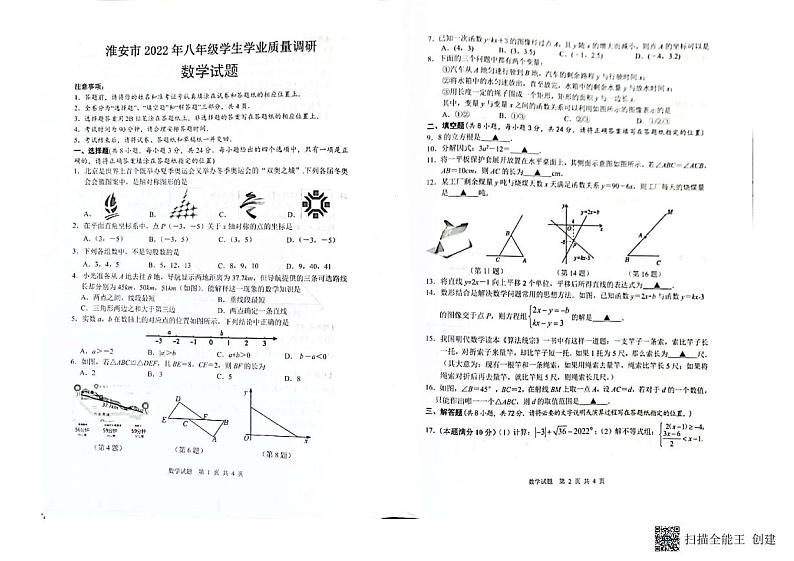 淮安市 2022 年八年级学生学业质量调研
数学试题
注意事项：
1．答题前，请将你的姓名和准考证号认真填涂在试卷和答题纸的相应位置上．
2．全卷分为"选择题"、"填空题"和"解答题"三部分，共 4 页．
3．选择题答案用2B铅笔涂在答题纸上，非选择题的答案写在答题纸的相应位置上．
4．考试时间为 90 分钟，请合理安排答题时间．
5．考试结束后，请将试卷、答题纸和草稿纸一并交回．
一、选择题(共 8 小题，每小题 3 分，共 24 分，每小题给出的四个选项中，只有一项是正
确的，请将正确答案填涂在答题纸指定的位置)
1．北京是世界上首个既举办夏季奥运会又举办冬季奥运会的"双奥之城"，下列各届冬奥
会会徽图案中，是轴对称图形的是
A． B． C． D．
2．在平面直角坐标系中，点 P（-3，-5）关于 x 轴对称的点的坐标是
A．(3，-5) B．(-3，5) C．(3，5) D．(-3，-5)
3．下列各组数中，不是勾股数的是
A．3，4，5 B．5，12，13 C．8，9，10 D．9，40，41
4．小光准备从 A 地去往 B 地，导航显示两地距离为 37.7km，但导航提供的三条可选路线
长却分别为 45km，50km，51km（如图）．能解释这一现象的数学知识是
A．两点之间，线段最短 B．垂线段最短
C．三角形两边之和大于第三边 D．两点确定一条直线
5．实数 a，b 在数轴上的对应点的位置如图所示，下列结论中正确的是
a b
-3 -2 -1 0 1 2 3
A．a＞-2 B．|a|＞b C．a+b＞0 D．b-a＜0
6．如图，若△ABC≌△DEF，且 BE=8，CF=2，则 BF的长为
A．2 B．3 C．5 D．8
37.7km
56分钟 56分钟
D F B E C A
y O x
(第 4 题) (第 6 题) (第 8 题)
数学试题 第 1 页 共 4 页
7．已知一次函数 y=kx+3 的图像经过点 A，且 y 随 x 的增大而减小，则点 A 的坐标可以是
A．(4，3) B．(3，3.5) C．(-1，2.5) D．(-4，3.2)
8．下面的三个问题中都有两个变量：
①汽车从 A 地匀速行驶到 B 地，汽车的剩余路程 y 与行驶时间 x；
②将水箱中的水匀速放出，直至放完，水箱中的剩余水量 y 与放水时间 x；
③用长度一定的绳子围成一个矩形，矩形的面积 y 与一边长 x．
其中，变量 y 与变量 x 之间的函数关系可以利用如图所示的图像表示的是
A．①② B．①③ C．②③ D．①②③
二、填空题(共 8 小题，每小题 3 分，共 24 分，请将正确答案填写在答题纸指定的位置)
9．8 的立方根是 ▲ ．
10．分解因式：3a²-12= ▲ ．
11．将一平板保护套展开放置在水平桌面上，其侧面示意图如图所示．若∠ABC=∠ACB，
AB=10cm，则 AC 的长为 ▲ cm．
12．某工厂剩余煤量 y 吨与烧煤天数 x 天满足函数关系 y=90-6x，则工厂每天的烧煤量
是 ▲ 吨．
A B C
y=2x+b y P x
M A B C
(第 11 题) (第 14 题) (第 16 题)
13．将直线 y=2x-1 向上平移 2 个单位，平移后所得直线的表达式为 ▲ ．
14．数形结合是解决数学问题常用的思想方法．如图，已知函数 y=2x+b 与函数 y=kx-3
的图像交于点 P，则方程组{2x-y=-b kx-y=3 的解是 ▲ ．
15．我国明代数学读本《算法统宗》一书中有这样一道题：一支竿子一条索，索比竿子长
一托，对折索子来量竿，却比竿子短一托．如果 1 托为 5 尺，那么索长为 ▲ 尺．
（其大意为：现有一根竿和一条绳索，如果用绳索去量竿，绳索比竿长 5 尺；如果将
绳索对折后再去量竿，就比竿短 5 尺，则绳索长几尺．）
16．如图，∠B=45°，BC=2，在射线 BM 上取一点 A，设 AC=d，若对于 d 的一个数值，
只能作出唯一一个△ABC，则 d 的取值范围是 ▲ ．
三、解答题(共 8 小题，共 72 分．请将必要的文字说明或演算过程写在答题纸指定的位置．)
17．(本题满分 10 分)（1）计算：|-3|+√36-2022⁰；（2）解不等式组：{2(x-1)≥-4， (3x-6)/2＜x-1．
数学试题 第 2 页 共 4 页
扫描全能王 创建